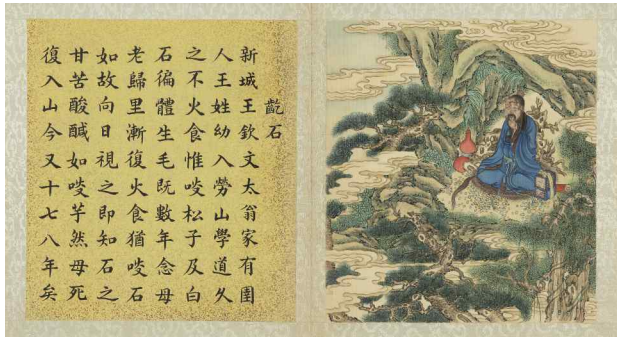 齕石
新城王欽文太翁家有圉
人王姓幼入勞山學道久
之不火食惟啖松子及白
石徧體生毛既數年念母
老歸里漸復火食猶啖石
如故向日視之即知石之
甘苦酸醎如啖芋然母死
復入山今又十七八年矣